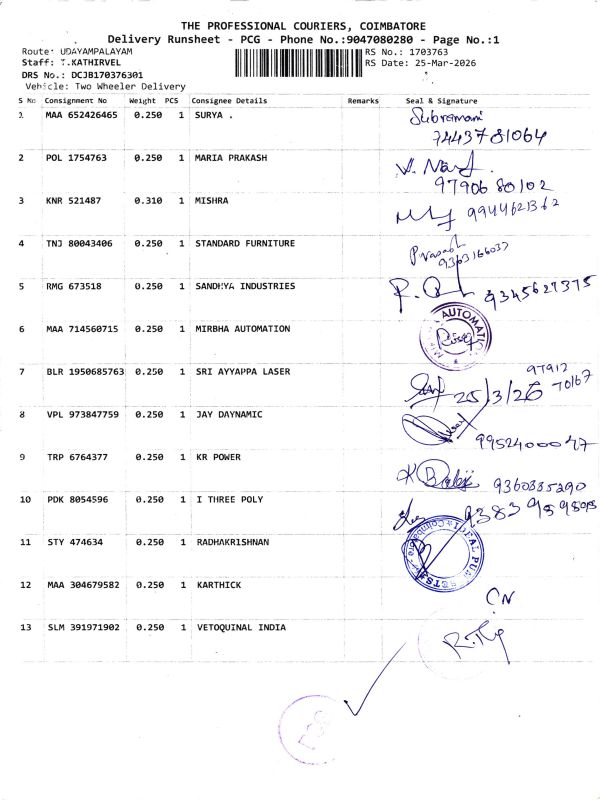 THE PROFESSIONAL COURIERS, COIMBATORE
Delivery Runsheet - PCG - Phone No.:9047080280 - Page No.:1
Route: UDAYAMPALAYAM
RS No.: 1703763
Staff: T.KATHIRVEL
RS Date: 25-Mar-2026
DRS No.: DCJB170376301
Vehicle: Two Wheeler Delivery
S No Consignment No Weight PCS Consignee Details Remarks Seal & Signature
1 MAA 652426465 0.250 1 SURYA . Subramani
7443781064
2 POL 1754763 0.250 1 MARIA PRAKASH
9790680102
3 KNR 521487 0.310 1 MISHRA 9944621362
4 TNJ 80043406 0.250 1 STANDARD FURNITURE Prasath
9363166037
5 RMG 673518 0.250 1 SANDHYA INDUSTRIES 9345627375
6 MAA 714560715 0.250 1 MIRBHA AUTOMATION AUTOMATIC
7 BLR 1950685763 0.250 1 SRI AYYAPPA LASER 97912
70167
25/3/26
8 VPL 973847759 0.250 1 JAY DAYNAMIC
9952400047
9 TRP 6764377 0.250 1 KR POWER K Balaji 9360335290
10 PDK 8054596 0.250 1 I THREE POLY
11 STY 474634 0.250 1 RADHAKRISHNAN
12 MAA 304679582 0.250 1 KARTHICK CN
13 SLM 391971902 0.250 1 VETOQUINAL INDIA